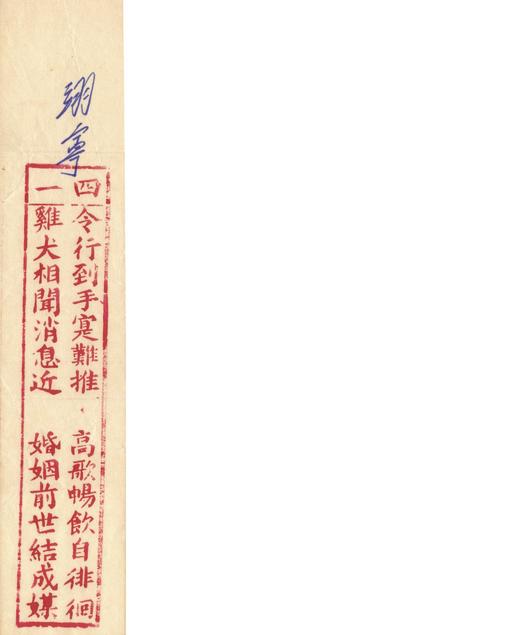 翊寧
四 令行到手寔難推 高歌暢飲自徘徊
一 雞犬相聞消息近 婚姻前世結成媒